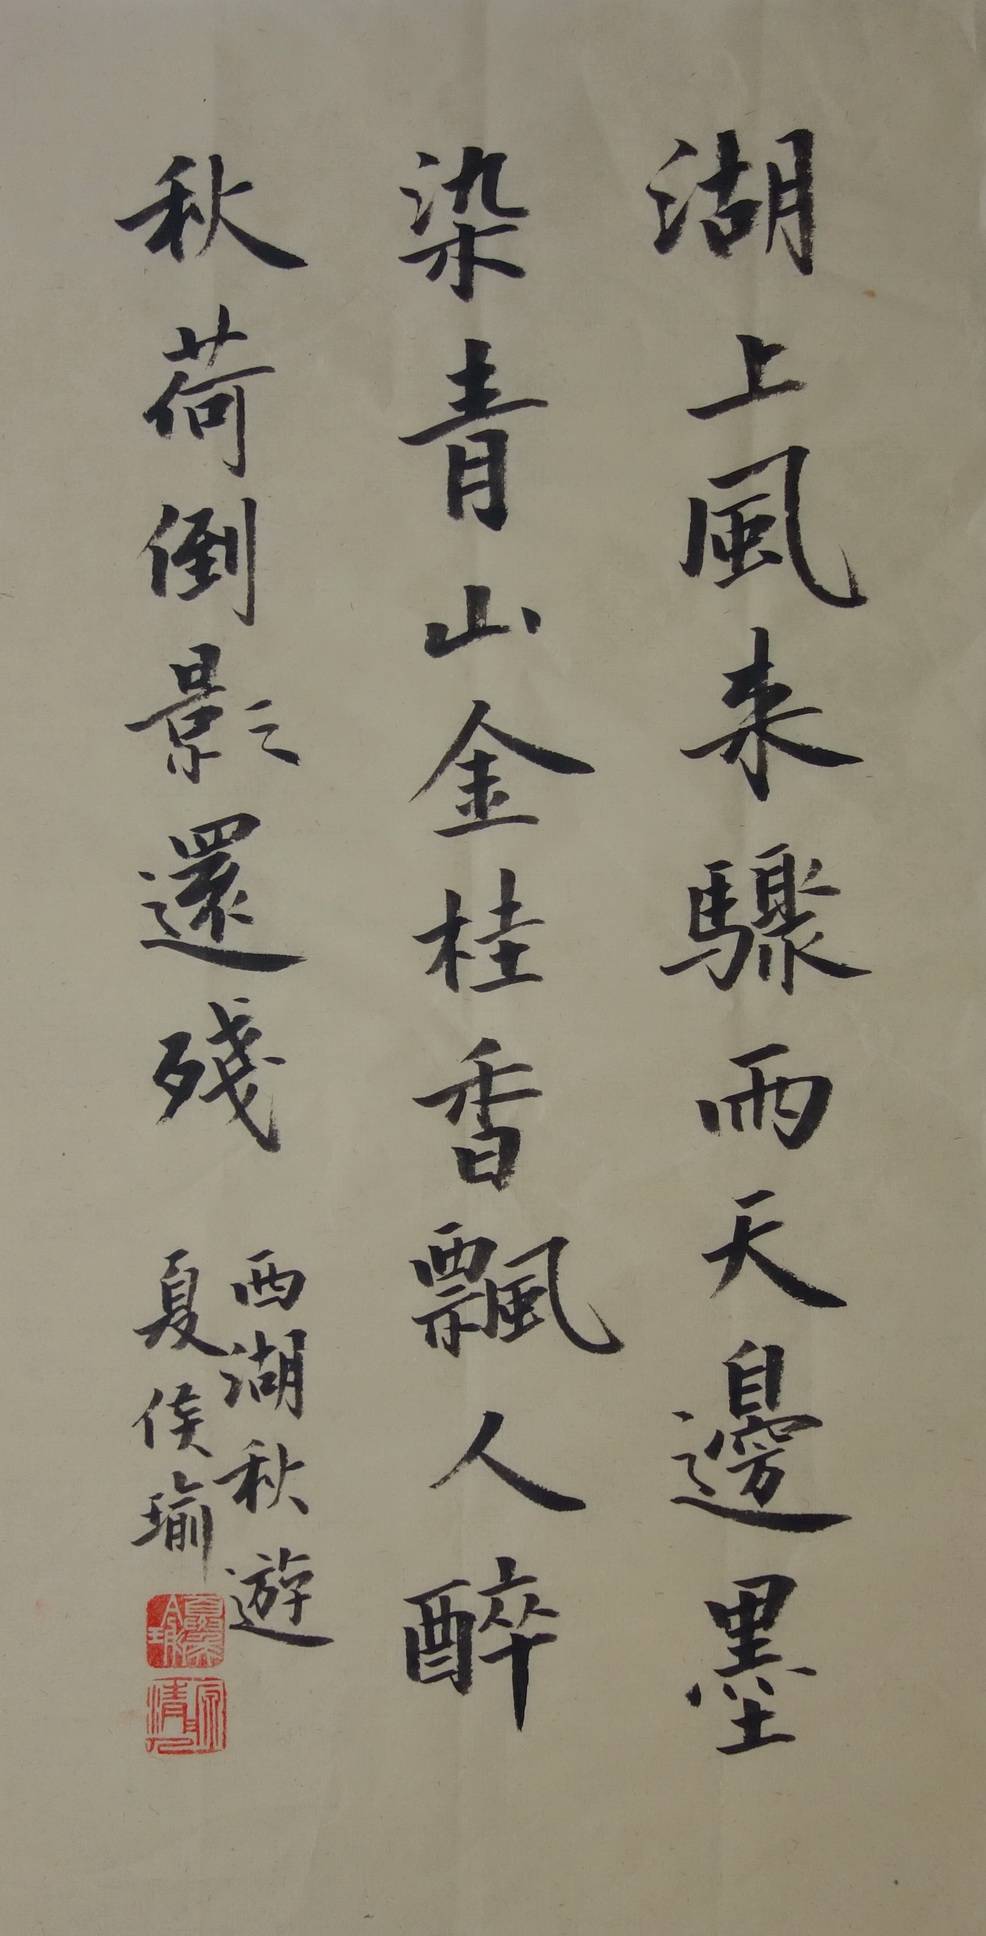 湖上風来驟雨天邊墨
染青山金桂香飄人醉
秋荷倒影還殘
西湖秋遊
夏侯瑜